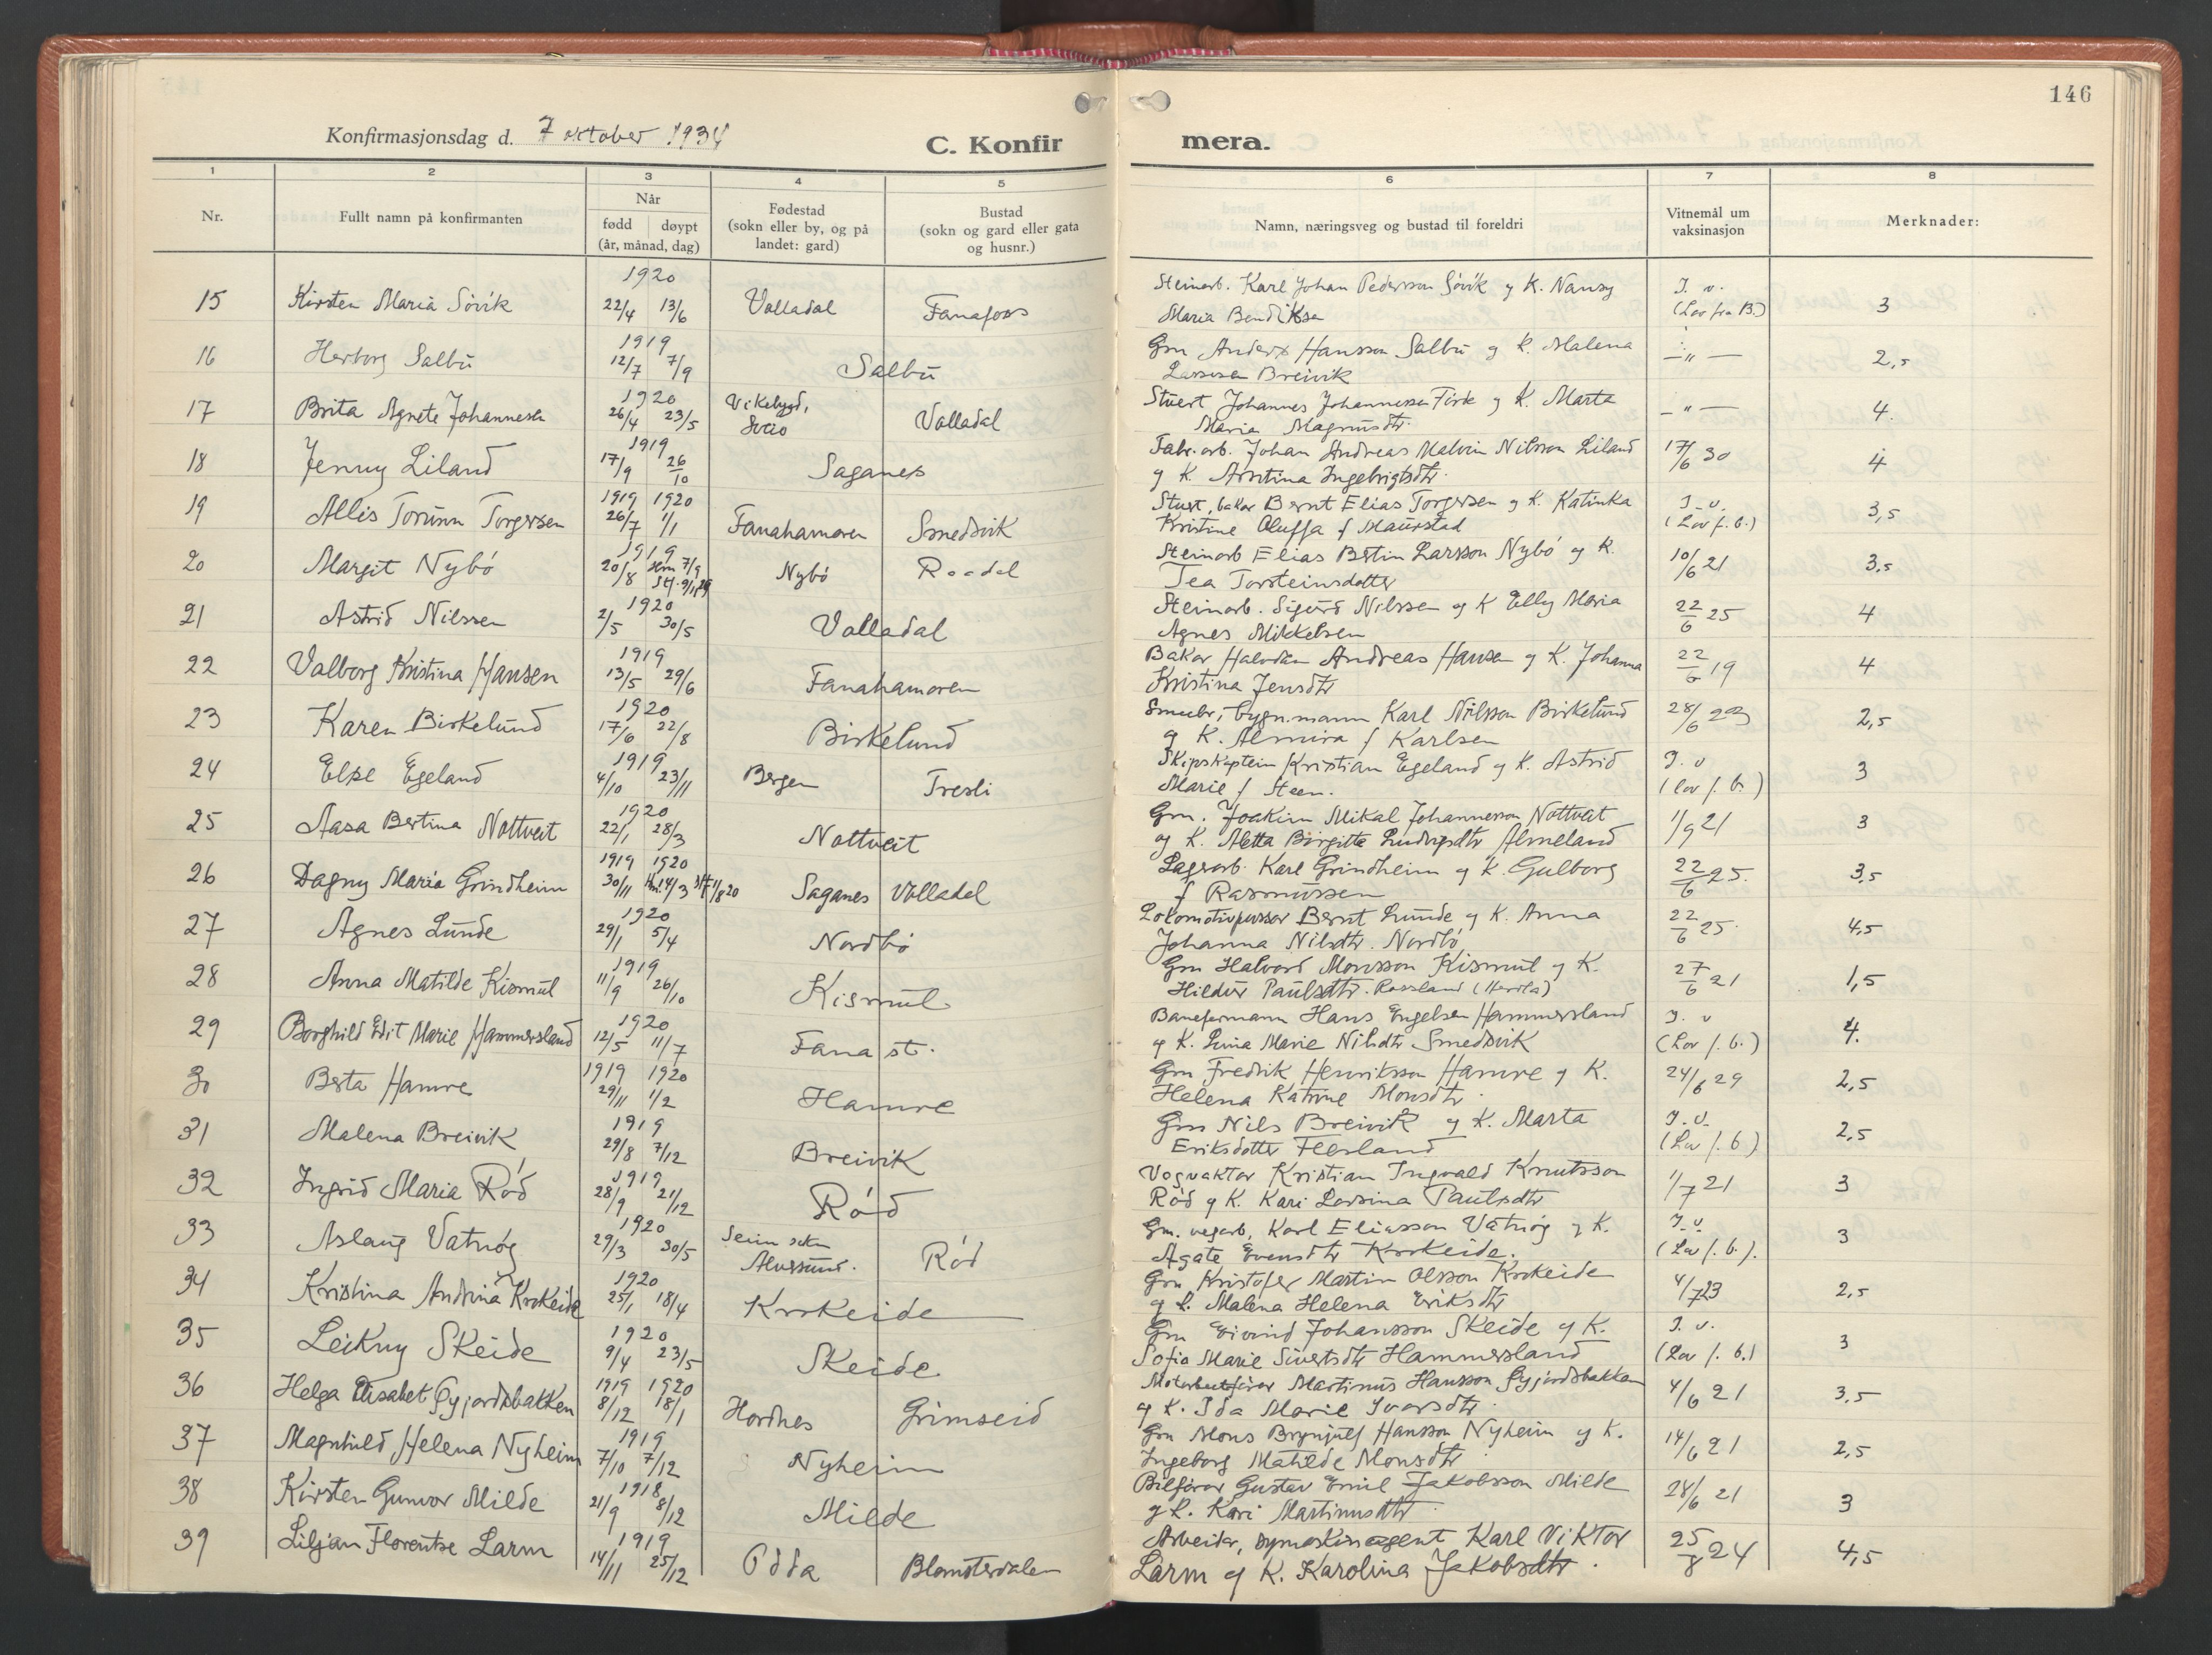 146
Konfirmasjonsdag d. 7 oktober 1934
C. Konfirmera.
1 2 3 4 5 6 7 8
Nr. Fullt namn på konfirmanten Når Fødestad Bustad Namn, næringsveg og bustad til foreldri Vitnemål um vaksinasjon Merknader:
fødd døypt (år, månad, dag) (sokn eller by, og på landet: gard) (sokn og gard eller gata og husnr.)
1920 Steinarb. Karl Johan Pedersson Sövik g K. Nansy J. v.
15 Kirsten Maria Sövik 22/4 13/6 Valladal Fanafoss Maria Bendiksen (Lov fra B.) 3
1919 Grn Anders Hansson Salbu g K. Malena
16 Herborg Salbu 12/7 7/9 Salbu Larssen Breivik — " — 2,5
1920 Vikebygd, Stuert Johannes Johannessen g K. Marta
17 Brita Agnete Johannesen 26/4 23/5 Valladal Maria Magnusdtr. — " — 4.
1919 Fabr. arb. Johan Andreas Malvin Nilsson Liland
18 Jenny Liland 17/9 26/10 Saganes g K. Ingebrigtsdtr. 17/6 30 4
1919 1920 Stuert, bakar Bernt Elias Torgersen g K. Katinka J. v.
19 Allis Torunn Torgersen 26/7 1/1 Fanahamaren Smedvik Kristine Oluffa f Maurstad (Lov f. b.) 3,5
1919 Steinarb Elias Larsson Nybö g K.
20 Margit Nybö 20/8 Hm 7/9 Nybö Tea Torsteinsdotter 10/6 21 3,5
1920 Steinarb. Sigurd Nilssen g K Elly Maria
21 Astrid Nilssen 2/5 30/5 Valladal Agnes Mikkelsen 22/6 25 4
1919 Bakar Halvdan Andreas Hansen g K. Johanna
22 Valborg Kristina Hansen 13/5 29/6 Fanahamaren Kristina Jensdtr 22/6 19 4
1920 bygn.mann Karl Nilsson Birkelund
23 Karen Birkelund 17/6 22/8 Birkelund g K. Almira f Karlsen 28/6 2,5
1919 Skipskaptein Kristian Egeland g K. Astrid J. v
24 Else Egeland 4/10 23/11 Bergen Tresli Marie f Steen. (Lov f. b.) 3
1920 Grn. Joakim Mikal Johannesson Nottveit
25 Aasa Bertina Nottveit 22/1 28/3 Nottveit og K. Aletta Birgitte Ludvigsdtr Almeland 1/9 21 3
1919 1920 Lagerarb. Karl Grindheim g K. Gulborg
26 Dagny Maria Grindheim 30/11 Hm. 14/3 Saganes Valladal f Rasmussen 22/6 25. 3,5
1920 Lokomotivpussar Bernt Lunde g K. Anna
27 Agnes Lunde 29/1 5/4 Nordbö Johanna Nilsdtr. Nordbö 22/6 25. 4,5
1919 Grn Halvard Monsson Kismul g K.
28 Anna Matilde Kismul 11/9 26/10 Kismul Hildur Paulsdtr. Rossland (Herdla) 27/6 21 1,5
1920 Baneformann Hans Engelsen Hammersland J. v
29 Borghild Edit Marie Hammersland 12/5 11/7 Fana st. g K. Lina Marie Nilsdtr Smedvik (Lov f. b.) 4.
1919 1920 Grn Fredrik Henriksson Hamre g K.
30 Berta Hamre 29/11 1/2 Hamre Helena Katrine Monsdtr. 24/6 29 2,5
1919 Grn Nils Breivik g K. Marta J. v.
31 Malena Breivik 29/8 7/12 Breivik Eriksdotter (Lov f. b.) 2,5
1919 Vogvaktar Kristian Ingvald Knutsson
32 Ingrid Maria Röd 28/9 21/12 Röd Röd g K. Kari Larsina Paulsdtr 1/7 21 3
1920 Seim sokn Grn. vegarb, Karl Eliasson Vatnög g K. J. v.
33 Aslaug Vatnög 29/3 30/5 Alversund. Röd Agate Evensdtr Krokeide. (Lov f. b.). 3
1920 Grn Kristofer Martin Olsson Krokeide
34 Kristina Andrina Krokeide 25/1 18/4 Krokeide g K. Malena Helena Eriksdtr 4/7 23 2,5
1920 Grn Eivind Johansson Skeide g K. J. v.
35 Leikny Skeide 9/4 23/5 Skeide Sofia Marie Sivertsdtr Hammersland (Lov f. b.) 3
1919 1920 Motorbåtförar Martinus Hansson Gyjordsbakken
36 Helga Elisabet Gyjordsbakken 8/12 18/1 Hordnes Grimseid g K. Ida Marie Ivarsdtr. 4/6 21 3,5
1919 Grn Mons Brynjulf Hansson Nyheim g K.
37 Magnhild Helena Nyheim 7/10 7/12 Nyheim Ingeborg Matilde Monsdtr 14/6 21 2,5
1918 Bilförar Gustav Emil Jakobsson Milde
38 Kirsten Gunvor Milde 21/9 8/12 Milde g K. Kari Martinusdtr. 28/6 21 3
1919 Arbeidar, symaskinagent Karl Viktor
39 Liljan Florentse Larm 14/11 25/12 Odda Blomsterdalen Larm g K. Karolina Jakobsdtr. 25/8 24 4,5